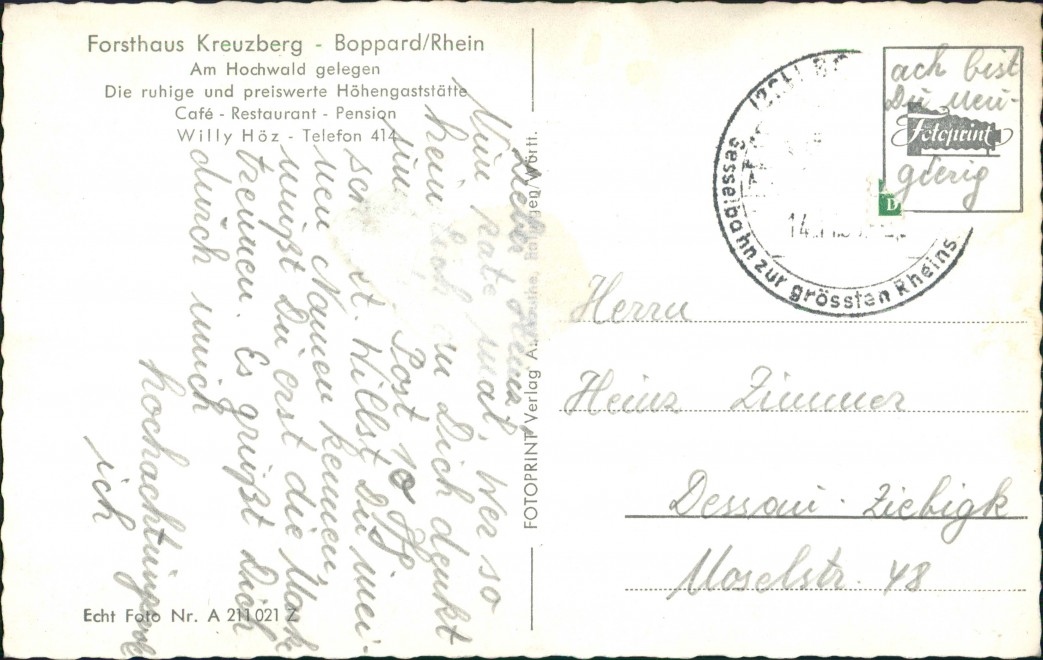 Forsthaus Kreuzberg - Boppard/Rhein
Am Hochwald gelegen
Die ruhige und preiswerte Höhengaststätte
Café - Restaurant - Pension
Willy Höz - Telefon 414
Lieber Heinz,
Nun rate mal, wer so
heim lich an Dich denkt
nun Post 10 Pf
sch st. Willst Du mei-
nen Namen kennen,
mußt Du erst die Mark
trennen. Es grüßt Dich
durch mich
hochachtungsvoll
ich
Echt Foto Nr. A 211 021 Z
FOTOPRINT Verlag
ach bist
Du neu-
Fotoprint
gierig
D
Sesselbahn zur grössten Rheins
14
Herrn
Heinz Zimmer
Dessau - Ziebigk
Moselstr. 48